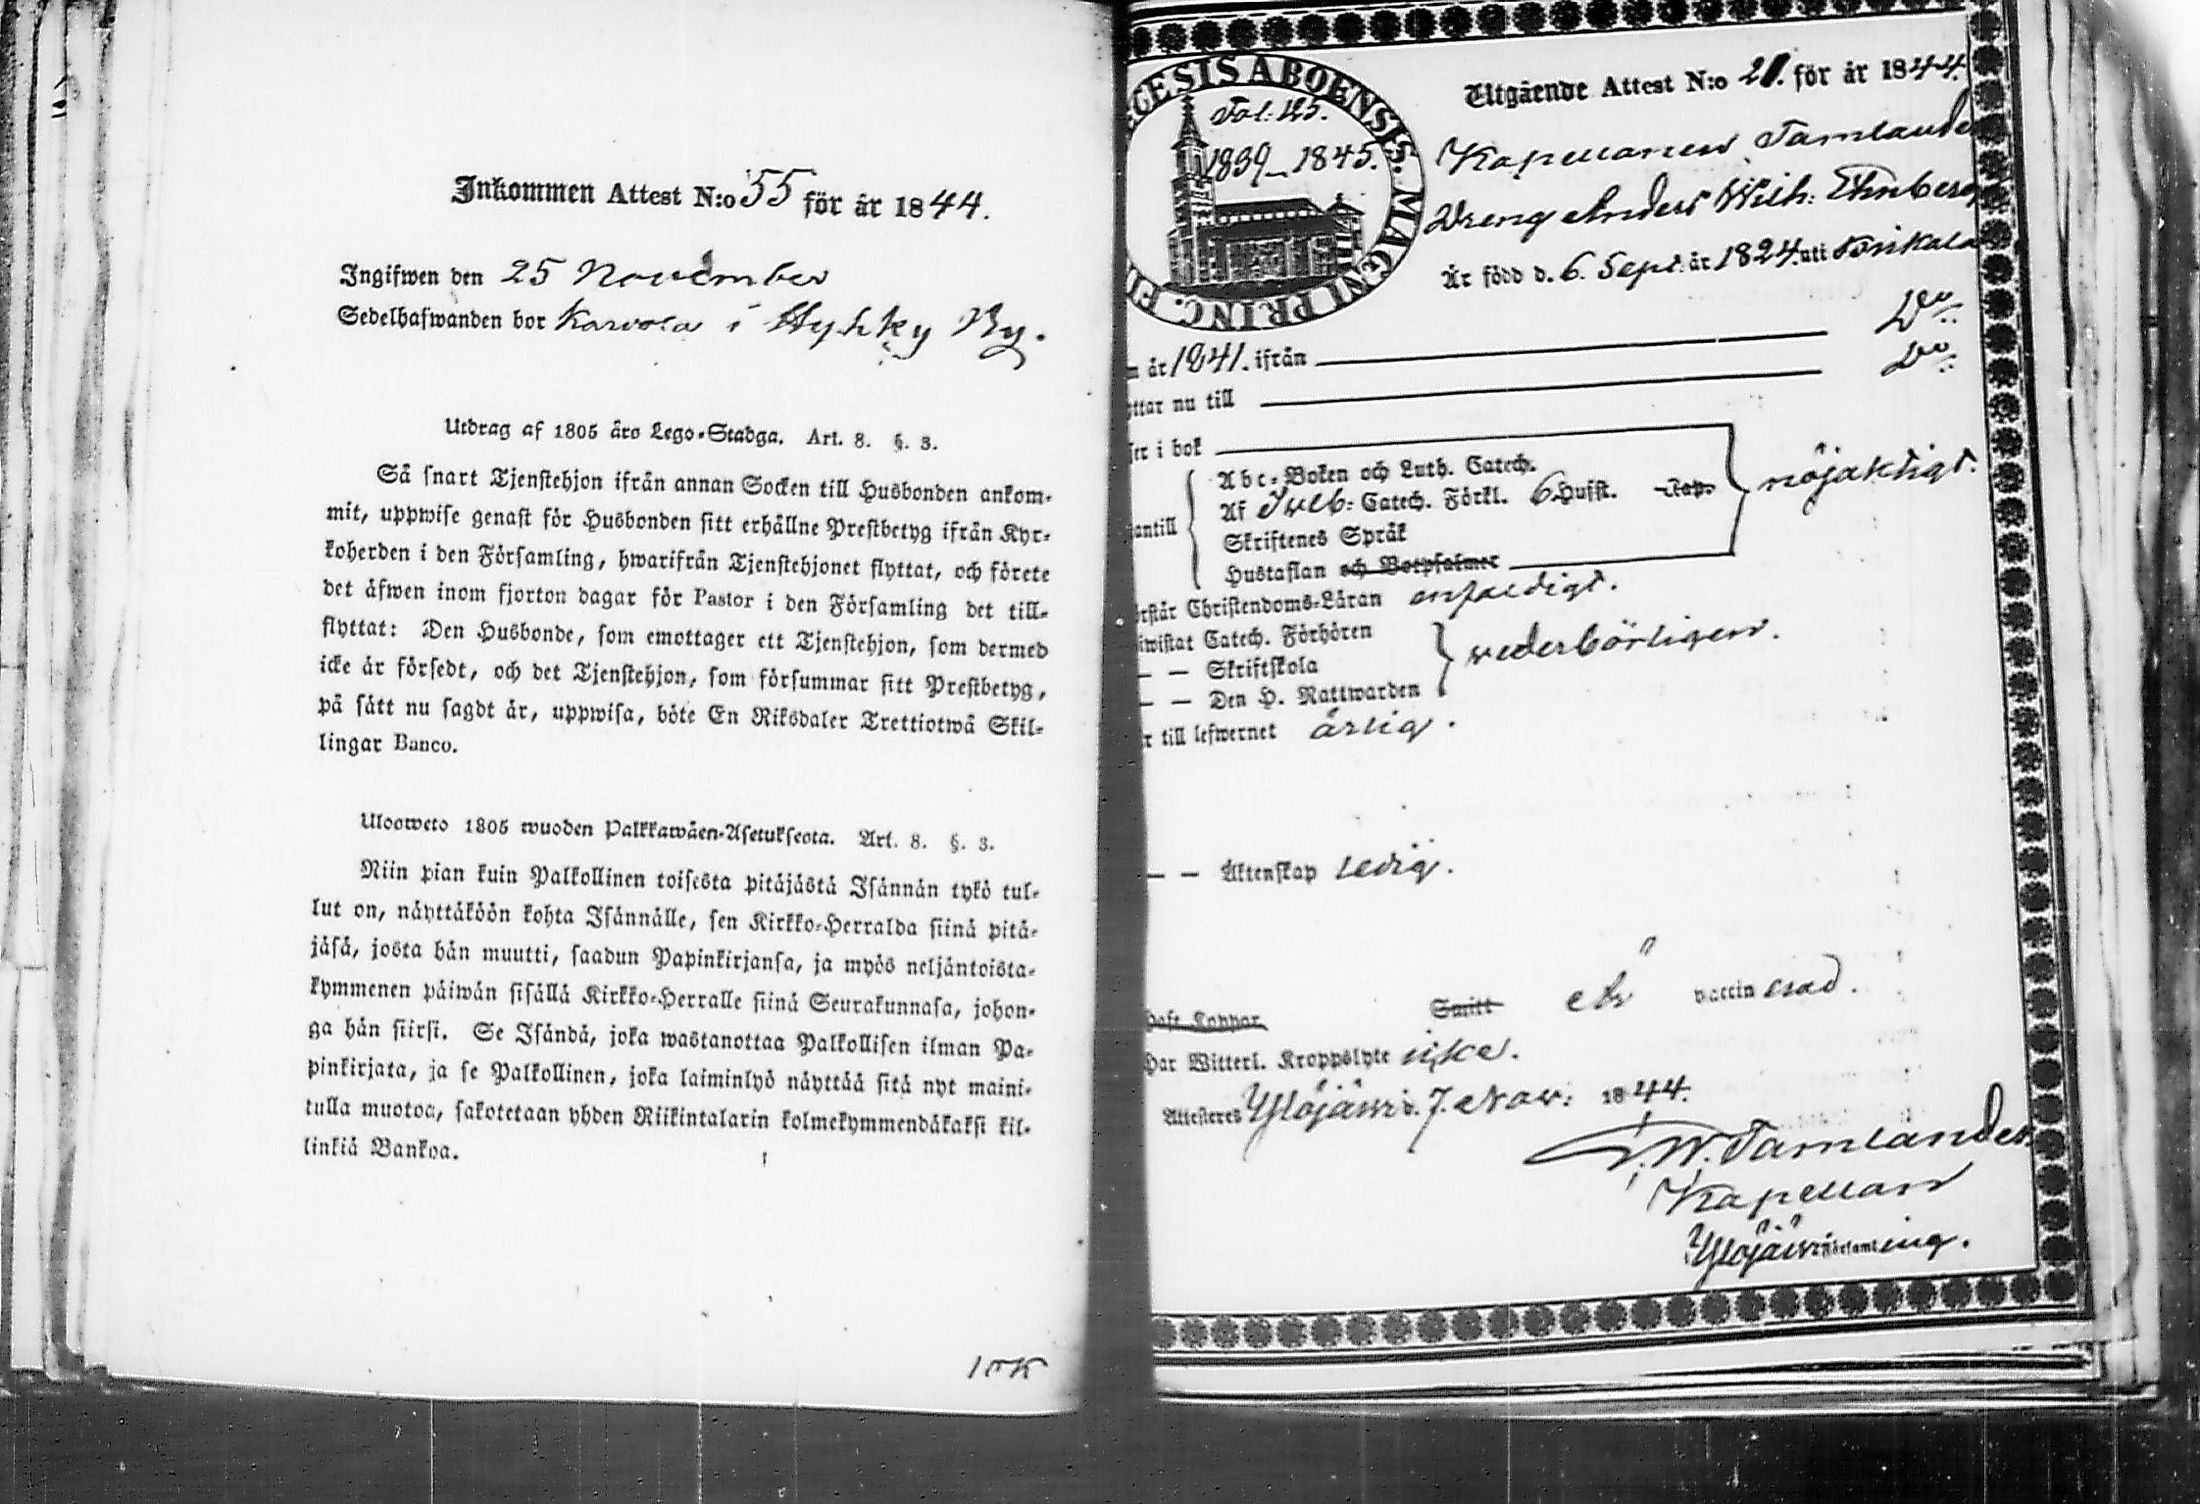 Inkommen Attest N:o 55 för år 1844.
Ingifwen den 25 November
Sedelhafwanden bor Karvola i Hyhky By.
Utdrag af 1805 års Lego-Stadga. Art. 8. §. 3.
Så snart Tjenstehjon ifrån annan Socken till Husbonden ankom-
mit, uppwise genast för Husbonden sitt erhållne Prestbetyg ifrån Kyr-
koherden i den Församling, hwarifrån Tjenstehjonet flyttat, och förete
det åfwen inom fjorton dagar för Pastor i den Församling det till-
flyttat: Den Husbonde, som emottager ett Tjenstehjon, som dermed
icke är försedt, och det Tjenstehjon, som försummar sitt Prestbetyg,
på sått nu sagdt är, uppwisa, böte En Riksdaler Trettiotwå Skil-
lingar Banco.
Ulosweto 1805 wuoden Palkkawäen-Asetuksesta. Art. 8. §. 3.
Niin pian kuin Palkollinen toisesta pitäjästä Isännän tykö tul-
lut on, näyttäköön kohta Isännälle, sen Kirkko-Herralda siinä pitä-
jäsä, josta hän muutti, saadun Papinkirjansa, ja myös neljäntoista-
kymmenen päiwän sisällä Kirkko-Herralle siinä Seurakunnasa, johon-
ga hän siirsi. Se Isändä, joka wastanottaa Palkollisen ilman Pa-
pinkirjata, ja se Palkollinen, joka laiminlyö näyttää sitä nyt maini-
tulla muotoa, sakotetaan yhden Riikintalarin kolmekymmendäkaksi kil-
linkiä Bankoa.
ECESIS ABOENSIS. MAGNI PRINC. FI
Fol: 125.
1839–1845.
Utgående Attest N:o 21. för år 1844.
Kapellanen Tamlande
Dreng Anders Wilh: Ehnberg
Är född d. 6. Sept. år 1824. uti
Do
n år 1841. ifrån
Do
ttar nu till
ser i bok
antill
Abc-Boken och Luth. Catech.
Af Sveb: Catech. Förkl. 6 Hufst. Kap.
Skriftenes Språk
Hustaflan och Botpsalmer
nöjaktigt.
rstår Christendoms-Läran enfaldigt.
iwistat Catech. Förhören
— — Skriftskola
— — Den H. Nattwarden
vederbörligen.
r till lefwernet ärlig.
— — Äktenskap ledig.
Haft Koppor Smitt Är vaccinerad.
Har Witterl. Kroppslyte icke.
Attesteres Ylöjärvi d. 7. Nov: 1844.
W. Tamlander
Kapellan
Ylöjärvi Församling.